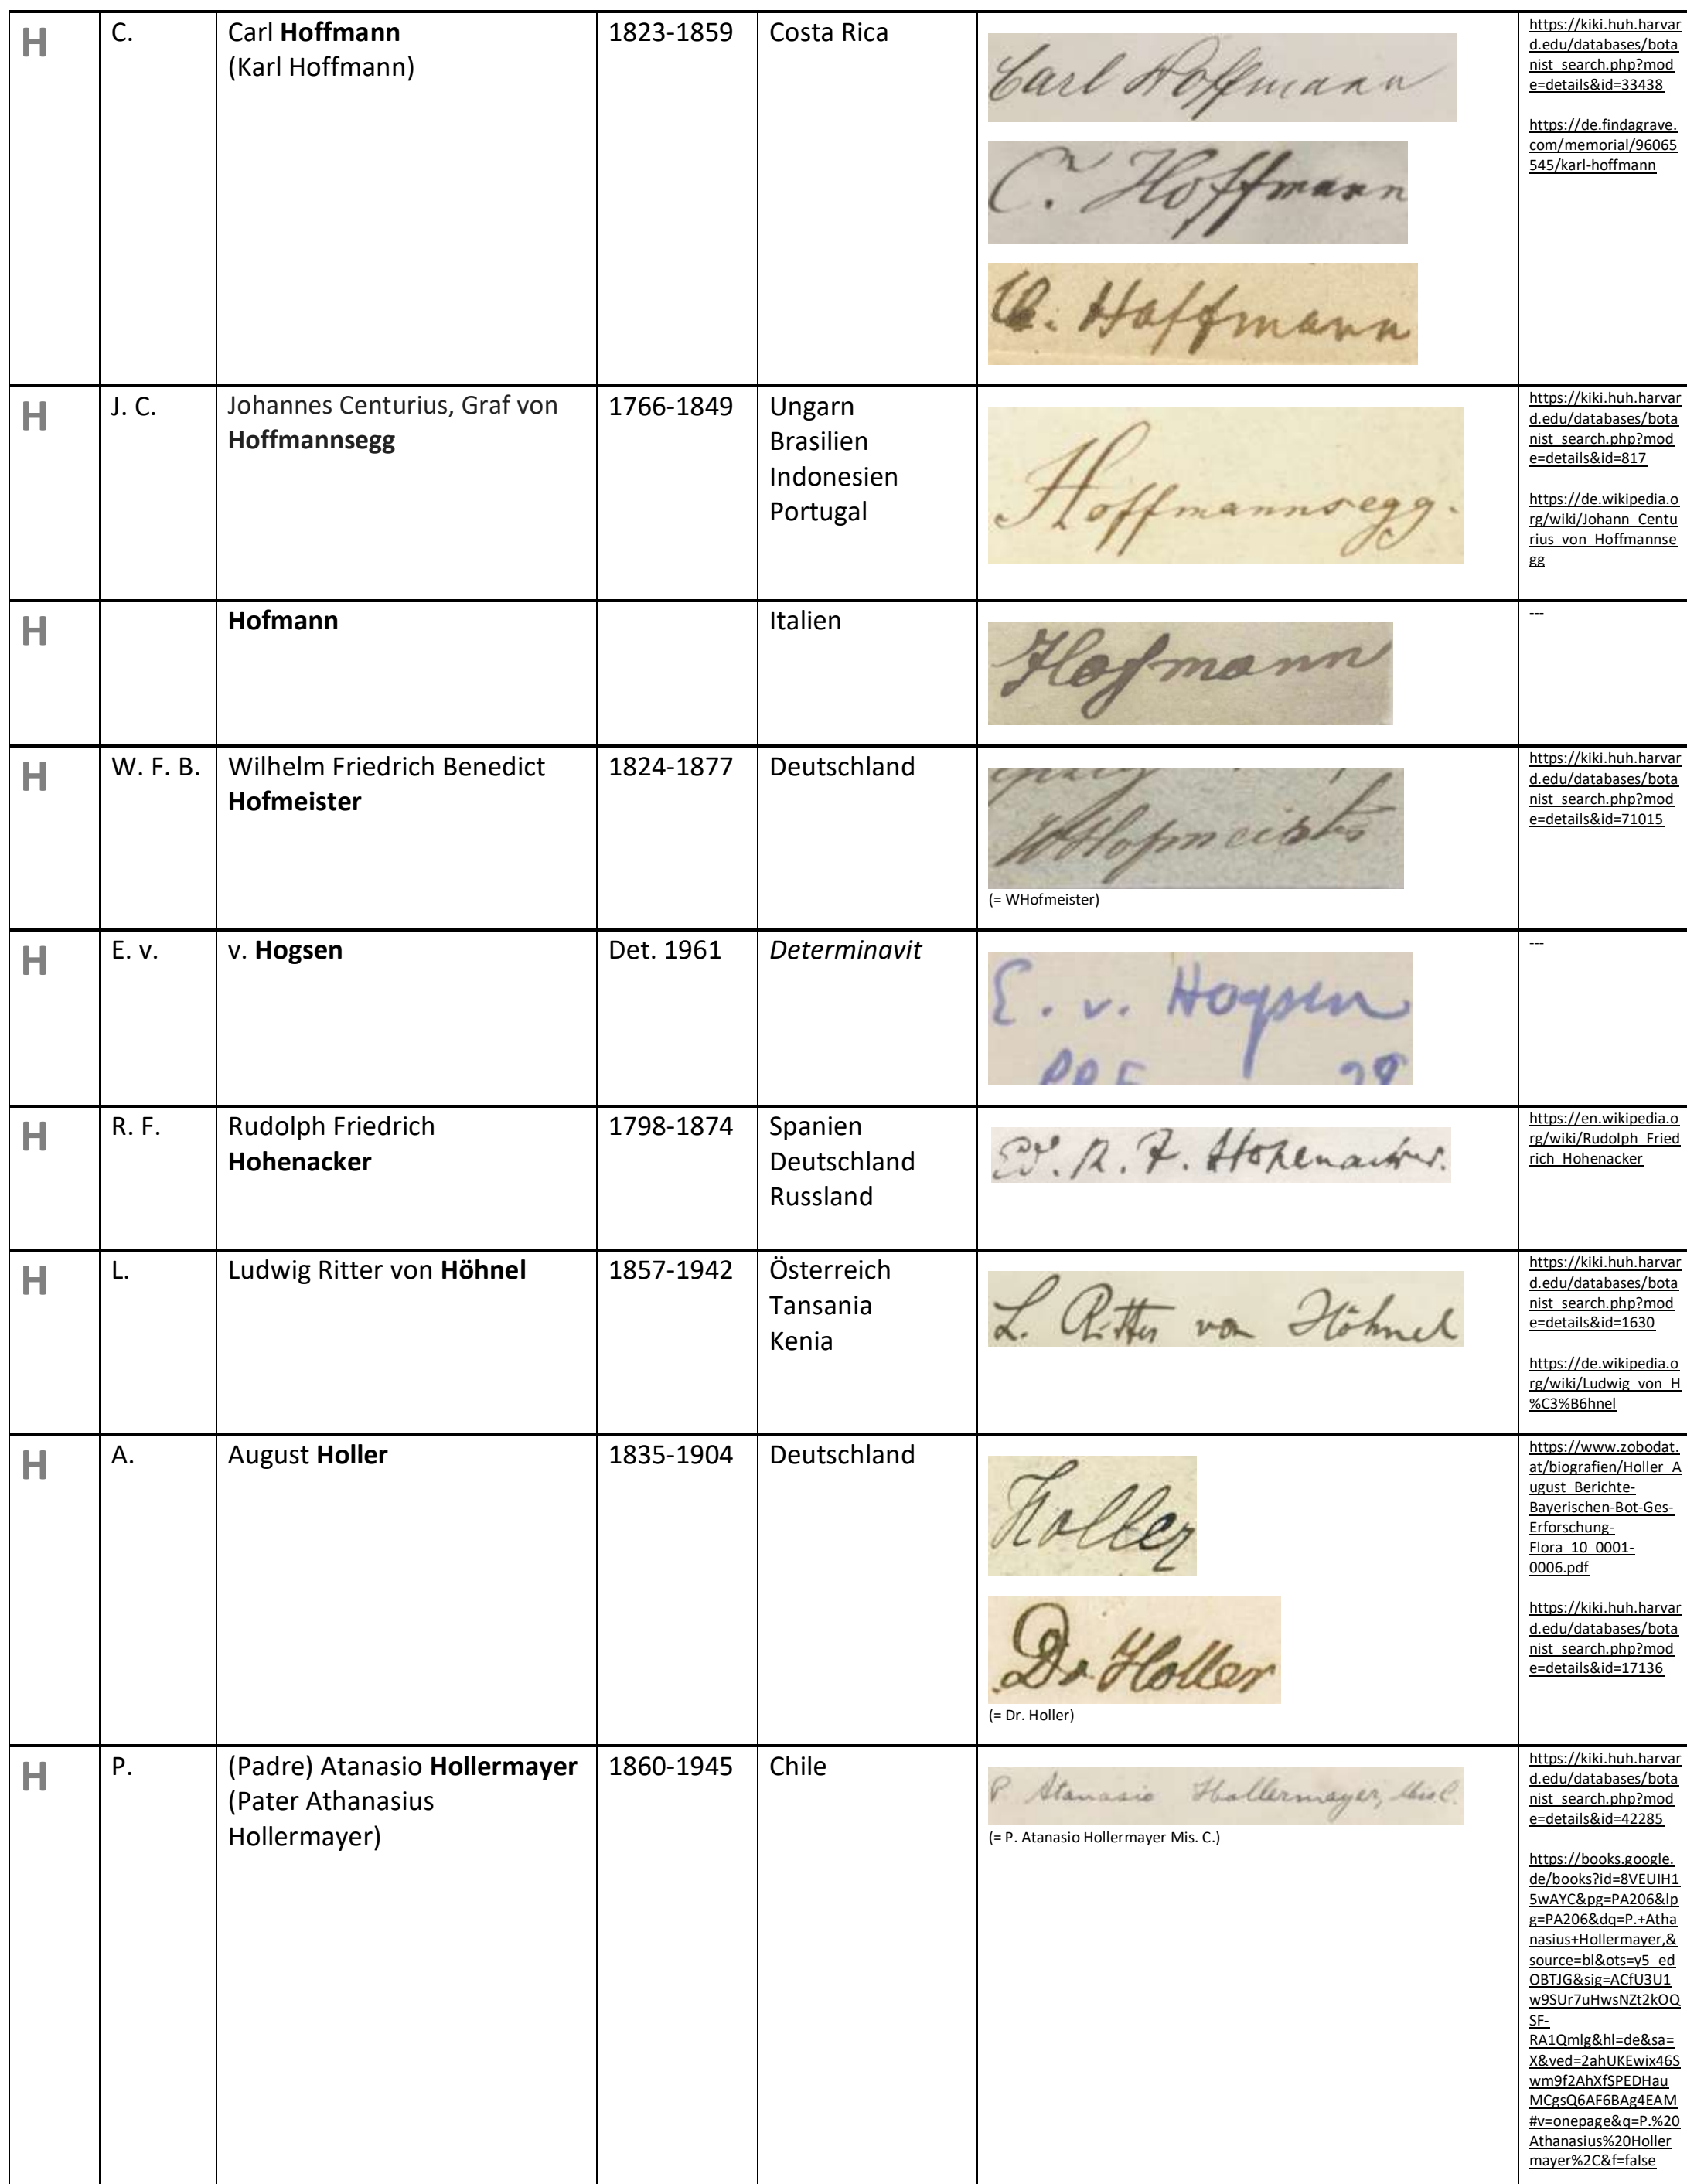 H
C.
Carl Hoffmann
(Karl Hoffmann)
1823-1859
Costa Rica
Carl Hoffmann
C. Hoffmann
C. Hoffmann
https://kiki.huh.harvar
d.edu/databases/bota
nist_search.php?mod
e=details&id=33438
https://de.findagrave.
com/memorial/96065
545/karl-hoffmann
H
J. C.
Johannes Centurius, Graf von
Hoffmannsegg
1766-1849
Ungarn
Brasilien
Indonesien
Portugal
Hoffmannsegg.
https://kiki.huh.harvar
d.edu/databases/bota
nist_search.php?mod
e=details&id=817
https://de.wikipedia.o
rg/wiki/Johann_Centu
rius_von_Hoffmannse
gg
H
Hofmann
Italien
Hofmann
---
H
W. F. B.
Wilhelm Friedrich Benedict
Hofmeister
1824-1877
Deutschland
WHofmeister
(= WHofmeister)
https://kiki.huh.harvar
d.edu/databases/bota
nist_search.php?mod
e=details&id=71015
H
E. v.
v. Hogsen
Det. 1961
Determinavit
E. v. Hogsen
---
H
R. F.
Rudolph Friedrich
Hohenacker
1798-1874
Spanien
Deutschland
Russland
R. F. Hohenacker.
https://en.wikipedia.o
rg/wiki/Rudolph_Fried
rich_Hohenacker
H
L.
Ludwig Ritter von Höhnel
1857-1942
Österreich
Tansania
Kenia
L. Ritter von Höhnel
https://kiki.huh.harvar
d.edu/databases/bota
nist_search.php?mod
e=details&id=1630
https://de.wikipedia.o
rg/wiki/Ludwig_von_H
%C3%B6hnel
H
A.
August Holler
1835-1904
Deutschland
Holler
Dr. Holler
(= Dr. Holler)
https://www.zobodat.
at/biografien/Holler_A
ugust_Berichte-
Bayerischen-Bot-Ges-
Erforschung-
Flora_10_0001-
0006.pdf
https://kiki.huh.harvar
d.edu/databases/bota
nist_search.php?mod
e=details&id=17136
H
P.
(Padre) Atanasio Hollermayer
(Pater Athanasius
Hollermayer)
1860-1945
Chile
P. Atanasio Hollermayer, Mis C.
(= P. Atanasio Hollermayer Mis. C.)
https://kiki.huh.harvar
d.edu/databases/bota
nist_search.php?mod
e=details&id=42285
https://books.google.
de/books?id=8VEUIH1
5wAYC&pg=PA206&lp
g=PA206&dq=P.+Atha
nasius+Hollermayer,&
source=bl&ots=y5_ed
OBTJG&sig=ACfU3U1
w9SUr7uHwsNZt2kOQ
SF-
RA1Qmlg&hl=de&sa=
X&ved=2ahUKEwix46S
wm9f2AhXfSPEDHau
MCgsQ6AF6BAg4EAM
#v=onepage&q=P.%20
Athanasius%20Holler
mayer%2C&f=false